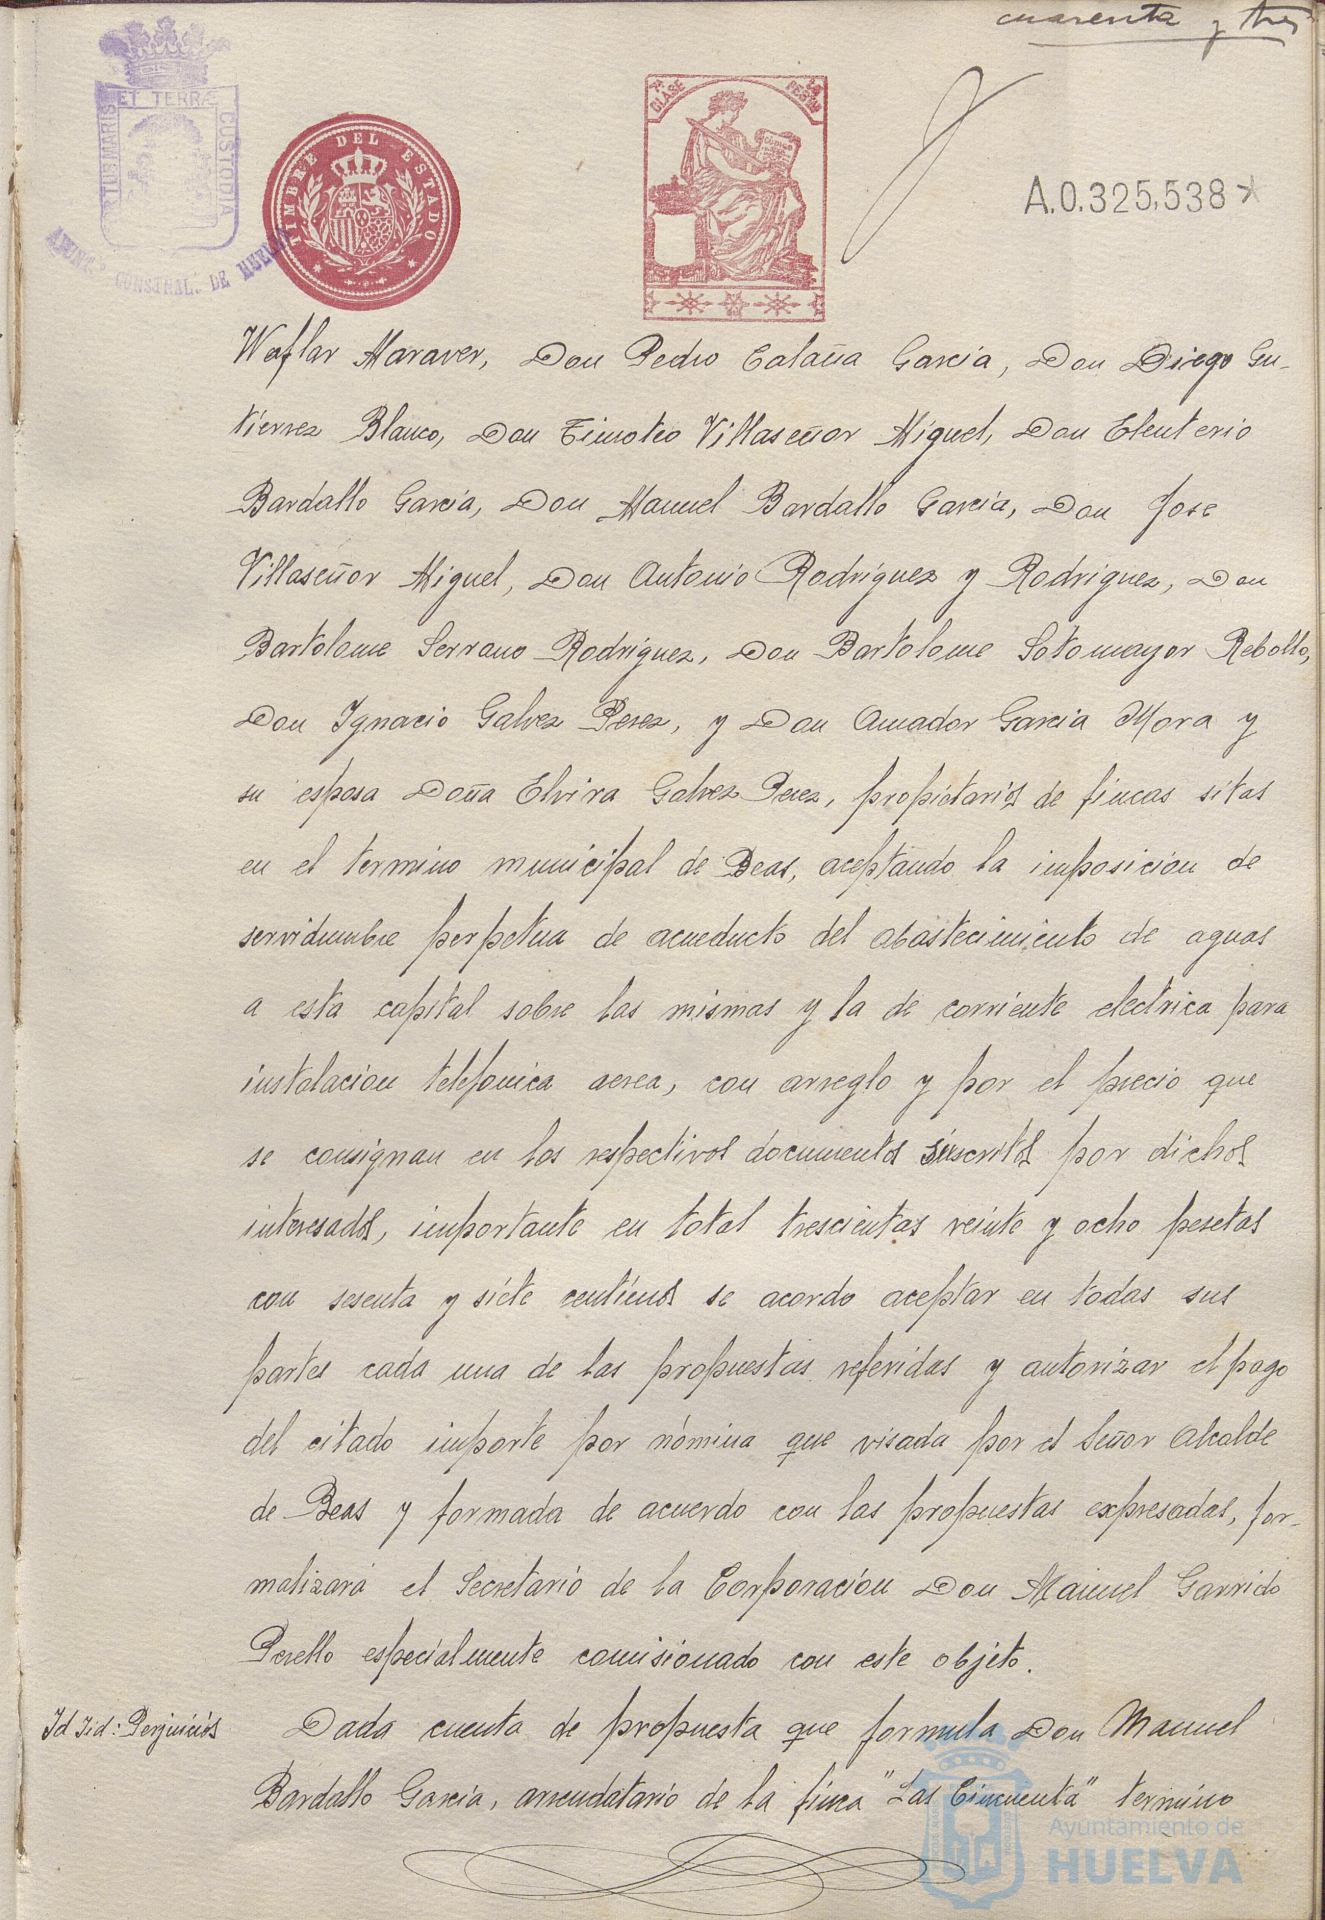 cuarenta y tres
PORTUS MARIS ET TERRÆ CUSTODIA
AYUNT.º CONSTNAL. DE HUELVA
TIMBRE DEL ESTADO
7ª CLASE
A.0.325,538*
Weflar Maraver, Don Pedro Calaña Garcia, Don Diego Gu-
tierrez Blanco, Don Timoteo Villaseñor Miguel, Don Eleuterio
Bardallo Garcia, Don Manuel Bardallo Garcia, Don Jose
Villaseñor Miguel, Don Antonio Rodriguez y Rodriguez, Don
Bartolome Serrano Rodriguez, Don Bartolome Sotomayor Rebollo,
Don Ignacio Galvez Perez, y Don Amador Garcia Mora y
su esposa Doña Elvira Galvez Perez, propietarios de fincas sitas
en el termino municipal de Beas, aceptando la imposicion de
servidumbre perpetua de acueducto del abastecimiento de aguas
a esta capital sobre las mismas y la de corriente electrica para
instalacion telefonica aerea, con arreglo y por el precio que
se consignan en los respectivos documentos suscritos por dichos
interesados, importante en total trescientas veinte y ocho pesetas
con sesenta y siete centimos se acordo aceptar en todas sus
partes cada una de las propuestas referidas y autorizar el pago
del citado importe por nómina que visada por el Señor Alcalde
de Beas y formada de acuerdo con las propuestas expresadas, for-
malizará el Secretario de la Corporacion Don Manuel Garrido
Perello especialmente comisionado con este objeto.
Id Iid: Perjuicios
Dada cuenta de propuesta que formula Don Manuel
Bardallo Garcia, arrendatario de la finca "Las Cincuenta" termino
Ayuntamiento de
HUELVA